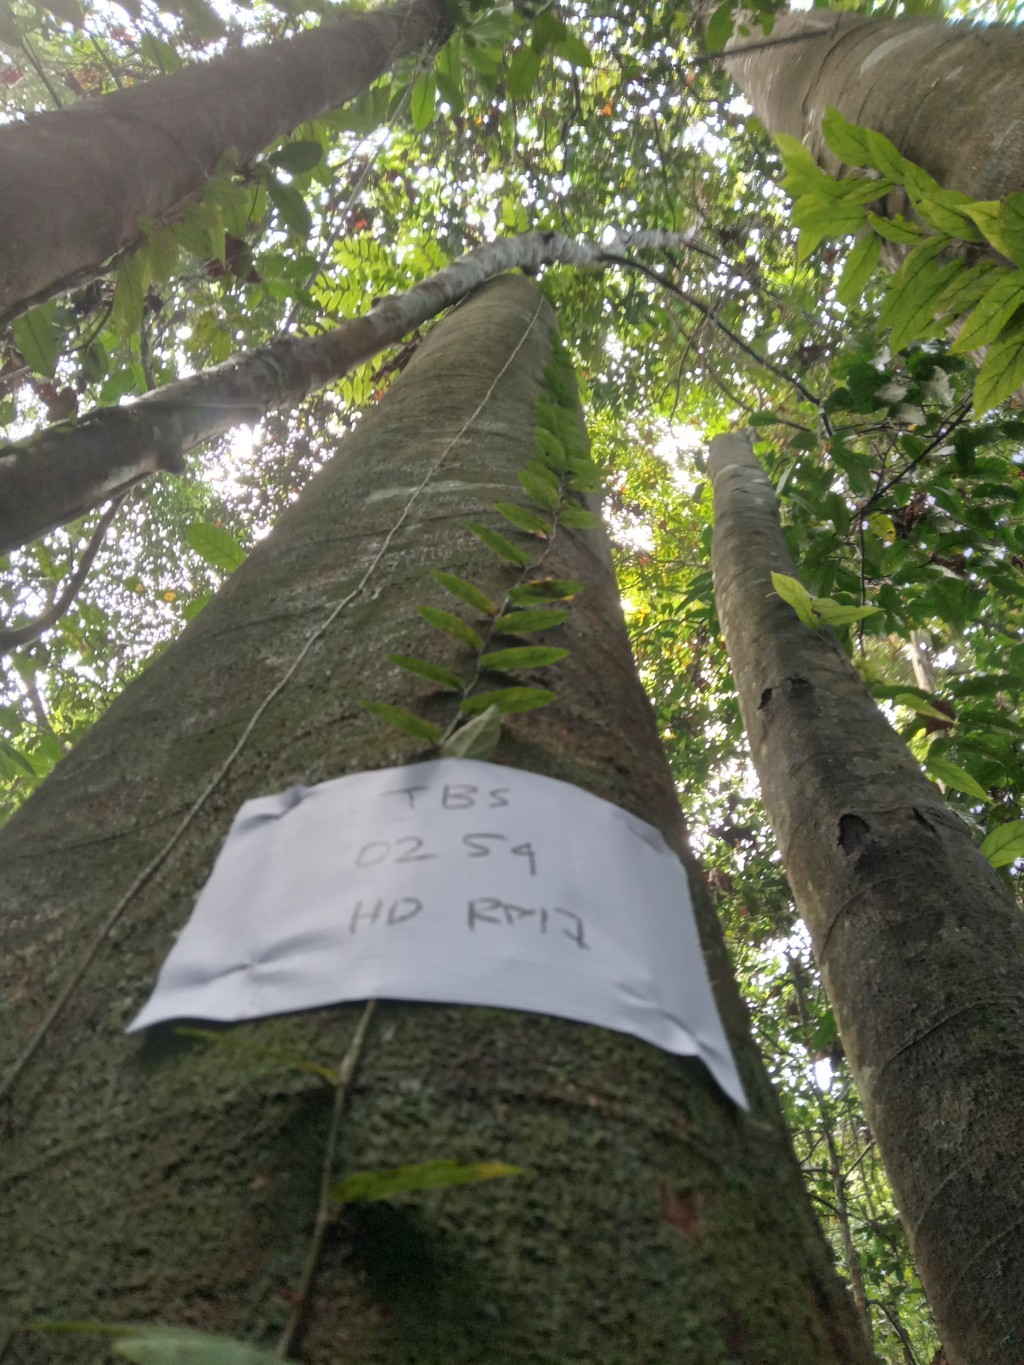 TBS
02 59
HD RM17